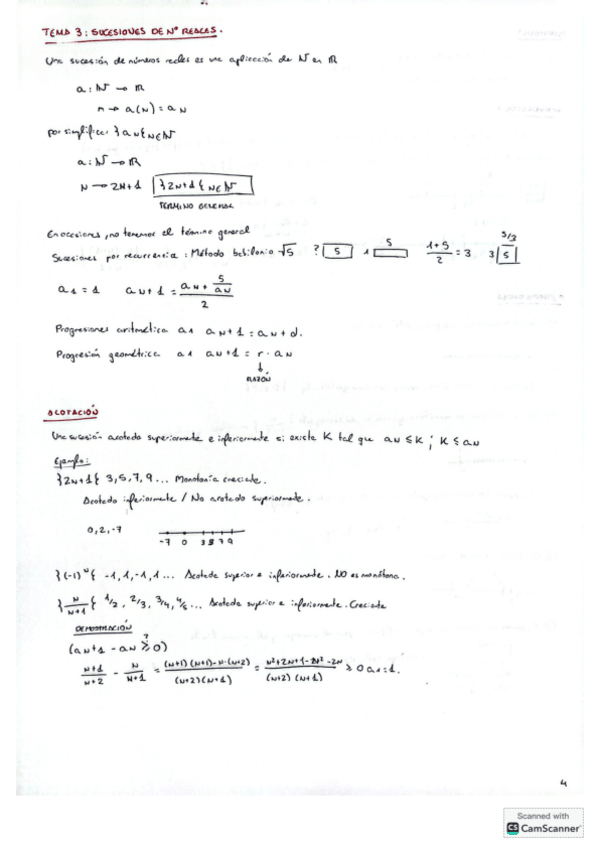 TEMA 3: SUCESIONES DE Nº REALES.
Una sucesión de números reales es una aplicación de N en R
a: N → R
n → a(N) = aN
por simplificar }aN{N∈N
a: N → R
N → 2N+1 }2N+1{N∈N
TÉRMINO GENERAL
En ocasiones, no tenemos el término general
Sucesiones por recurrencia: Método babilonio √5 ? 5 1 5 (1+5)/2 = 3 3 5 5/3
a1 = 1 aN+1 = (aN + 5/aN)/2
Progresiones aritmética a1 aN+1 = aN + d.
Progresión geométrica a1 aN+1 = r · aN
↓
RAZÓN
ACOTACIÓN
Una sucesión acotada superiormente e inferiormente si existe K tal que aN ≤ K ; K ≤ aN
Ejemplo:
}2N+1{ 3, 5, 7, 9 ... Monotonía creciente.
Acotado inferiormente / No acotado superiormente.
0, 2, -7
-7 0 3 5 7 9
}(-1)^N{ -1, 1, -1, 1 ... Acotada superior e inferiormente. NO es monótona.
}N/(N+1){ 1/2, 2/3, 3/4, 4/5 ... Acotada superior e inferiormente. Creciente
DEMOSTRACIÓN
(aN+1 - aN ≥ 0) ?
(N+1)/(N+2) - N/(N+1) = ((N+1)(N+1)-N·(N+2))/((N+2)(N+1)) = (N²+2N+1-2N²-2N)/((N+2)(N+1)) ≥ 0 a1=1.
4
Scanned with
CS CamScanner